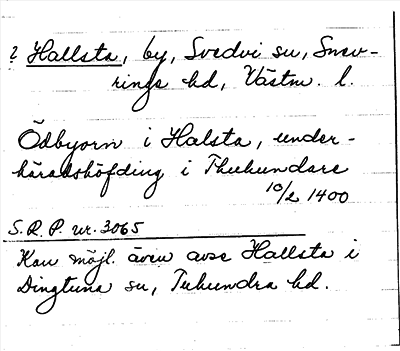 ? Hallsta, by, Svedvi sn, Snev-
rings hd, Västm. l.
Ödbyorn i Halsta, under-
häradshöfding i Thuhundare
10/2 1400
S.R.P. nr. 3065
Kan möjl. även avse Hallsta i
Dingtuna sn, Tuhundra hd.